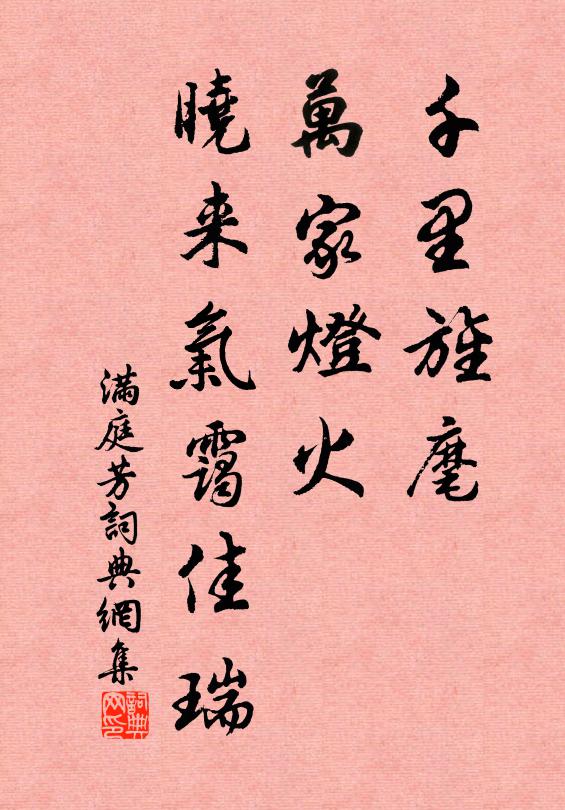 千里旌麾
萬家燈火
曉来氣靄佳瑞
滿庭芳詞典網集
詞典网印